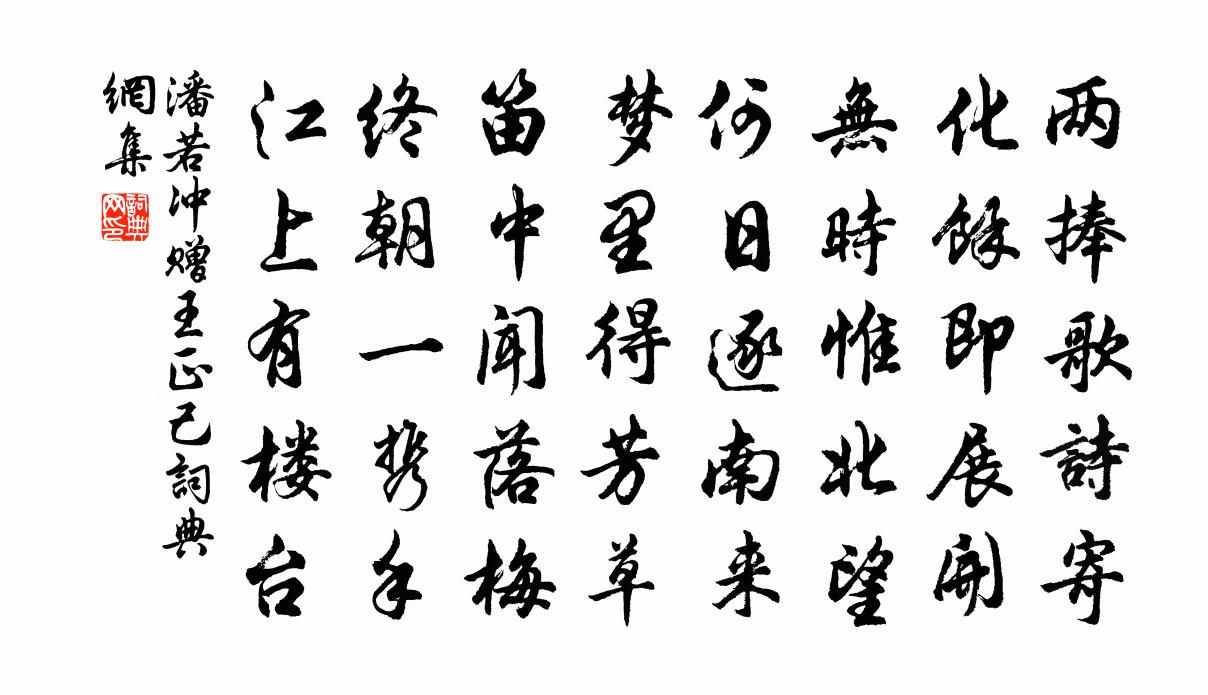 两捧歌詩寄
化餘即展開
無時惟北望
何日逐南来
梦里得芳草
笛中闻落梅
终朝一携手
江上有楼台
潘若冲赠王正己詞典
網集
詞典
网印